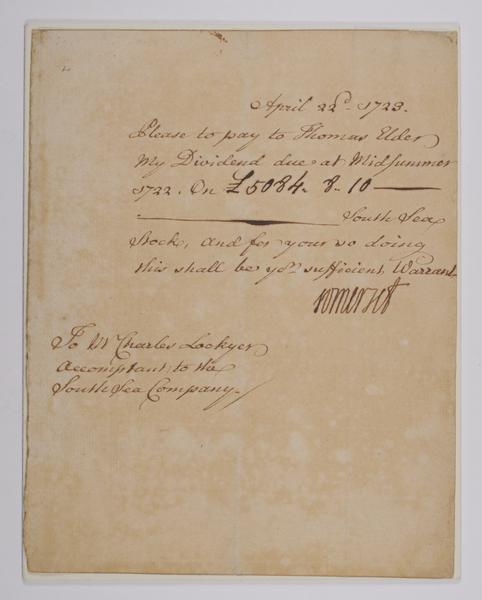 April 22d. 1723.
Please to pay to Thomas Elder
My Dividend due at Midsummer
1722. On £5084. 8. 10
South Sea
Stock, and for your so doing
this shall be yor. sufficient Warrant
Somerset
To Mr Charles Lockyer
Accomptant to the
South Sea Company.